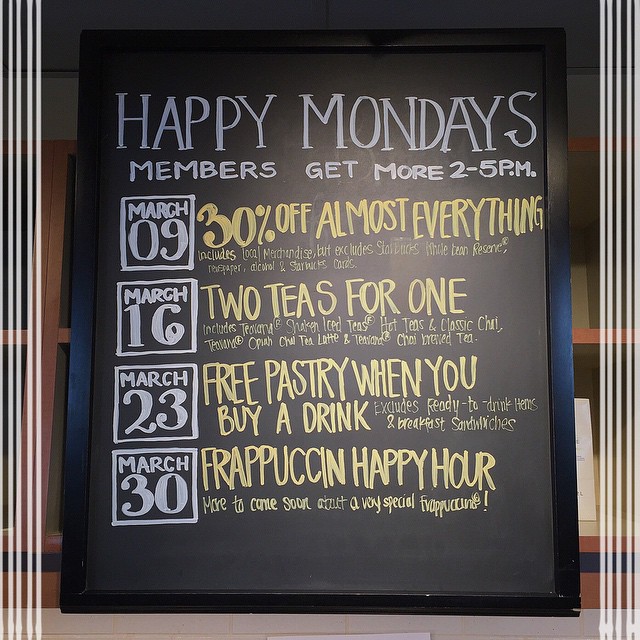 HAPPY MONDAYS
MEMBERS GET MORE 2-5P.M.
MARCH
09
30% OFF ALMOST EVERYTHING
includes local Merchandise, but excludes Starbucks Whole bean Reserve®,
newspaper, alcohol & Starbucks Cards.
MARCH
16
TWO TEAS FOR ONE
includes Teavana® Shaken Iced Teas® Hot Teas & Classic Chai,
Teavana® Oprah Chai Tea Latte & Teavana® Chai brewed Tea.
MARCH
23
FREE PASTRY WHEN YOU
BUY A DRINK Excludes Ready-to-drink items
& breakfast Sandwiches
MARCH
30
FRAPPUCCIN HAPPY HOUR
More to come soon about a very special Frappuccino®!